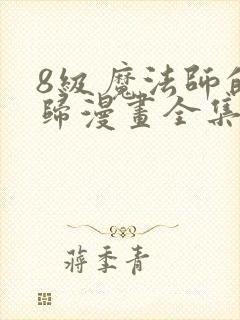 8級魔法師的
歸漫畫全集
蔣季青